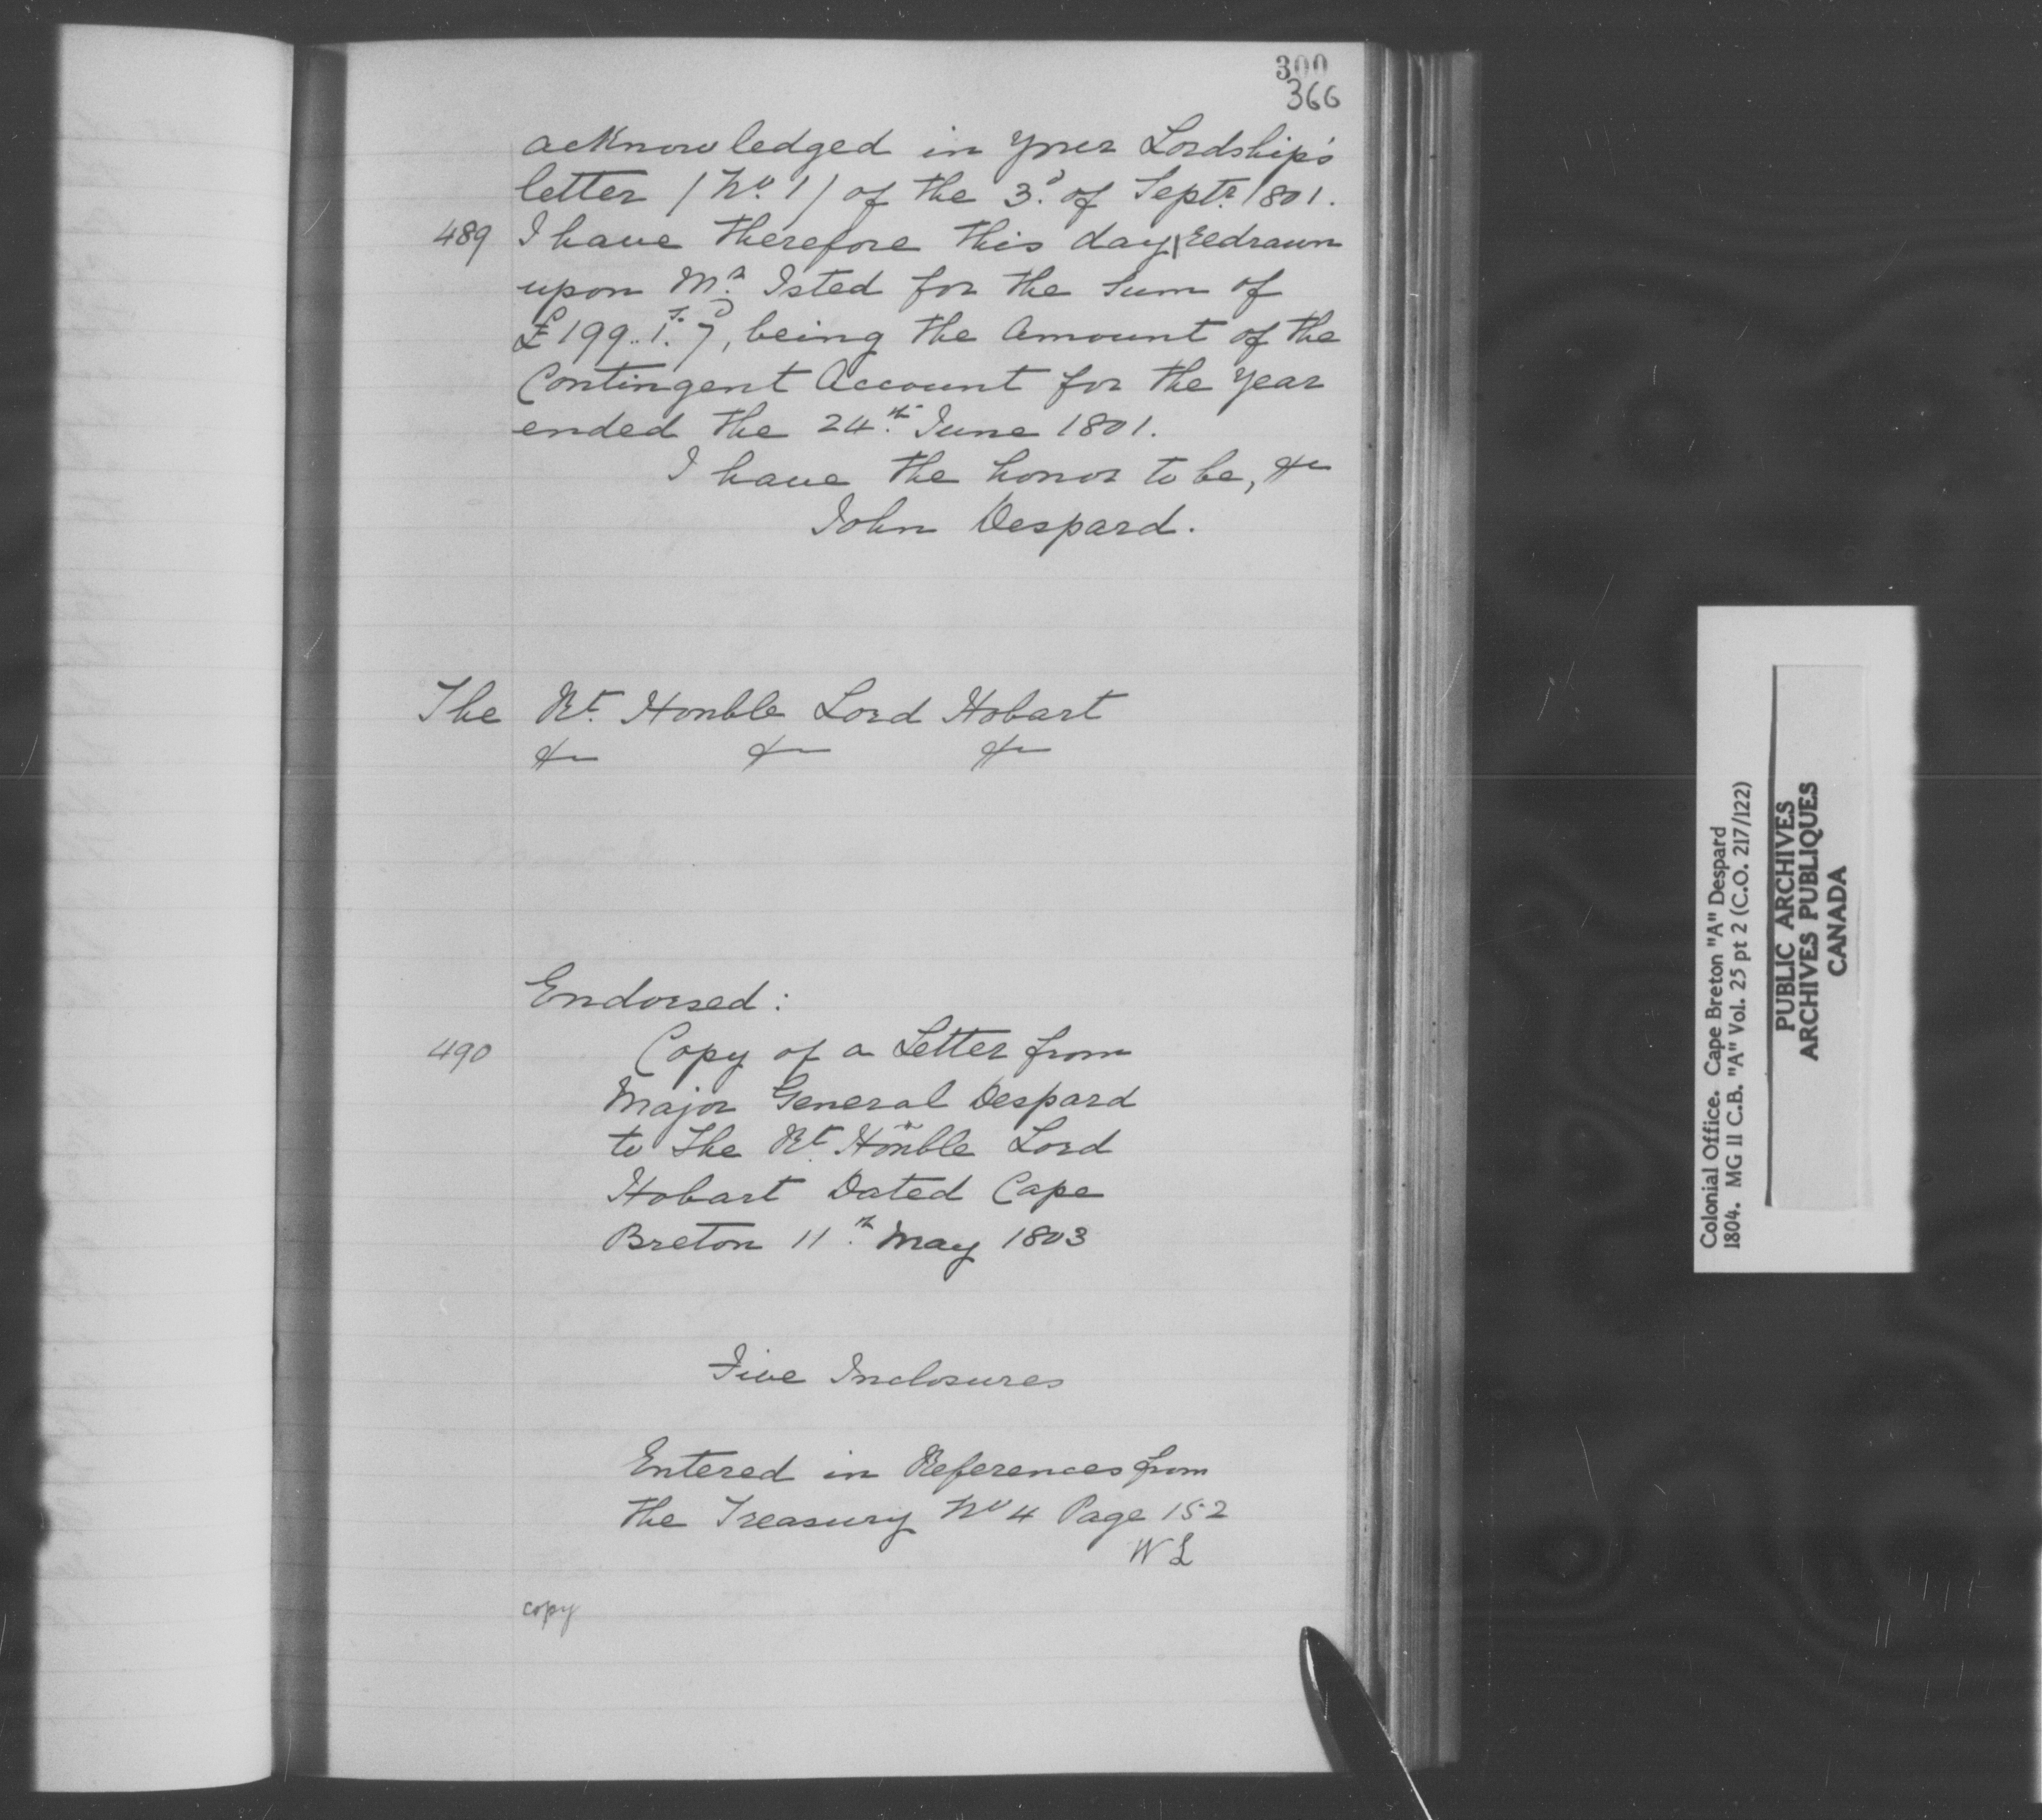 300
366
acknowledged in your Lordship's
letter / No. 1 / of the 3d. of Septr. 1801.
489 I have therefore this day redrawn
upon Mr. Isted for the Sum of
£199..1s.7d, being the Amount of the
Contingent Account for the Year
ended the 24th. June 1801.
I have the honor to be, &c
John Despard.
The Rt. Honble Lord Hobart
&c &c &c
Endorsed:
490 Copy of a Letter from
Major General Despard
to The Rt. Honble Lord
Hobart Dated Cape
Breton 11th. May 1803
Five Inclosures
Entered in References from
the Treasury No 4 Page 152
W L
copy
Colonial Office. Cape Breton "A" Despard
1804. MG 11 C.B. "A" Vol. 25 pt 2 (C.O. 217/122)
PUBLIC ARCHIVES
ARCHIVES PUBLIQUES
CANADA